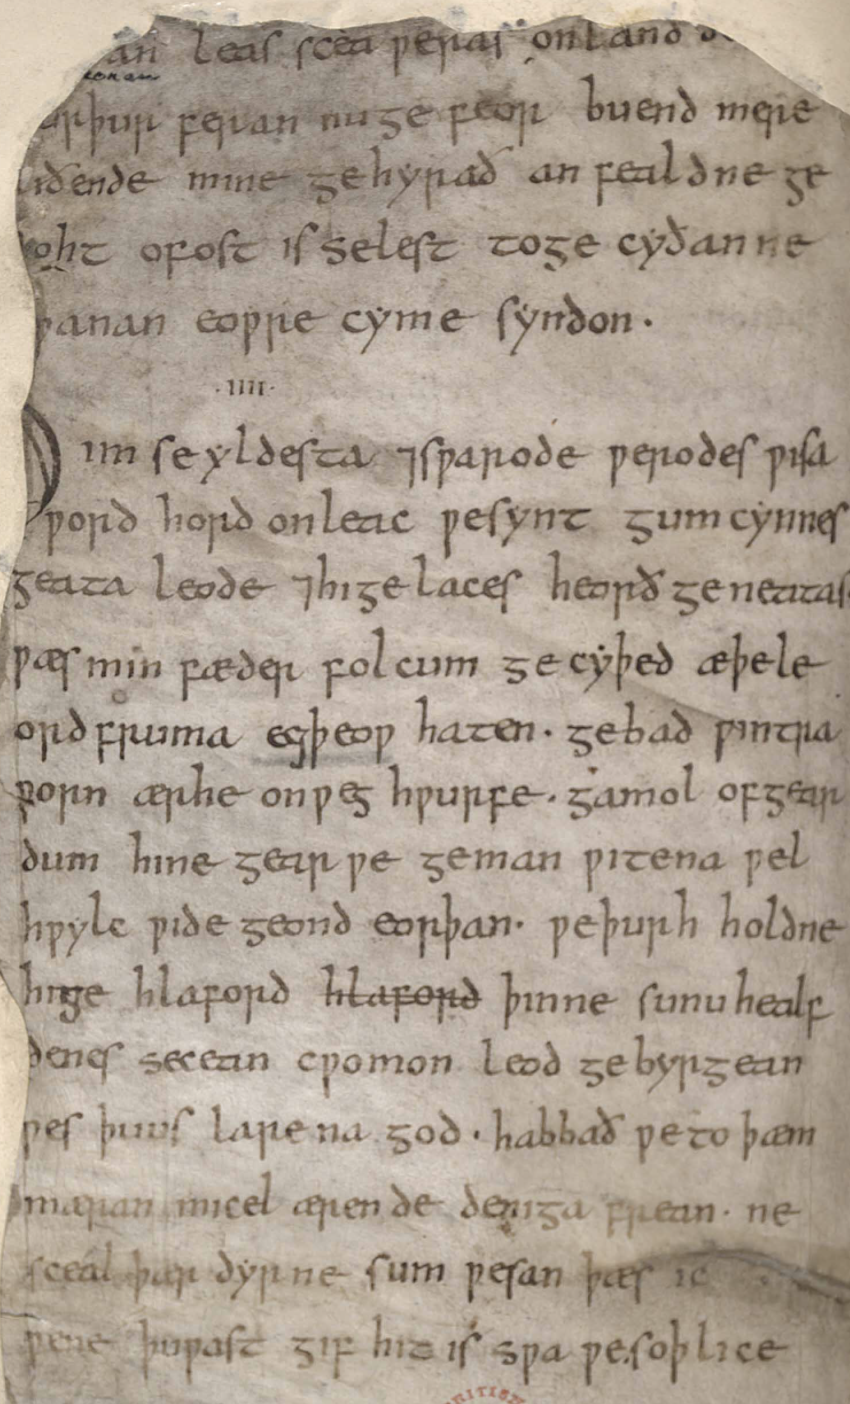 an leas sceaƿeras on land d
heonan
urþur feran nu ge feor buend mere
liðende minne gehyrað an fealdne ge
þoht ofost is selest to ge cyðanne
hƿanan eoƿre cyme syndon·
·IIII·
Him se yldesta ⁊sƿarode ƿerodes ƿisa
ƿord hord onleac ƿe synt gum cynnes
geata leode ⁊hige laces heorð ge neatas
ƿæs min fæder folcum ge cyþed æþele
ord fruma ecgþeoƿ haten· gebad ƿintra
ƿorn ær he on ƿeg hƿurfe· gamol of gear
dum hine gearƿe geman ƿitena ƿel
hƿylc ƿide geond eorþan· ƿe þurh holdne
hige hlaford hlaford þinne sunu healf
denes secean cƿomon leod ge byrgean
ƿes þu us larena god· habbað ƿe to þæm
mæran micel ærende deniga frean· ne
sceal þær dyrne sum ƿesan þæs ic
ƿene þu ƿast gif hit is sƿa ƿe soþlice